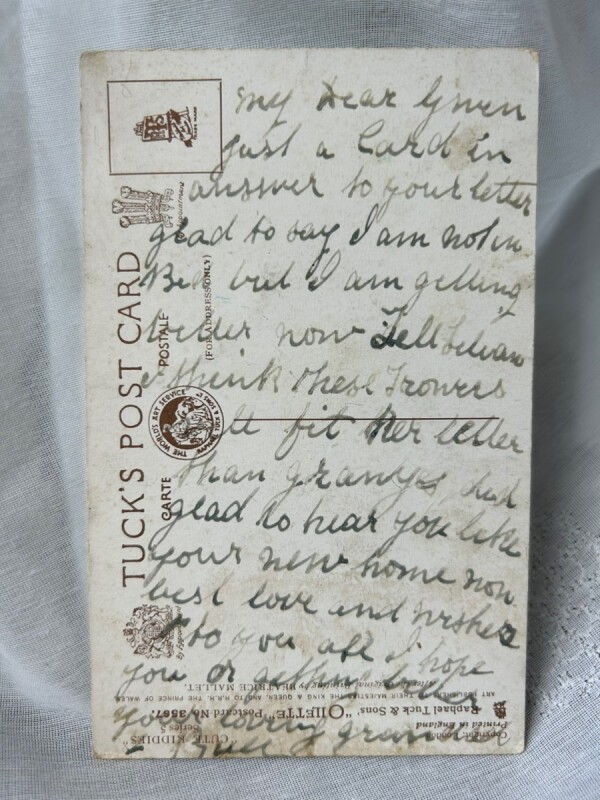 my Dear Gwen
just a Card in
answer to your letter
glad to say I am not in
Bed but I am getting
better now Tell Lilian
I think these Trowers
will fit Her better
than grannys, and
glad to hear you like
your new home now
best love and wishes
to you all I hope
you
your loving
TUCK'S POST CARD
CARTE POSTALE
(FOR ADDRESS ONLY)
By Appointment
THE WORLD'S ART SERVICE
RAPHAEL TUCK & SONS LTD
ART PUBLISHERS TO THEIR MAJESTIES THE KING & QUEEN, AND TO H.R.H. THE PRINCE OF WALES
Raphael Tuck & Sons' "OILETTE" Postcard No. 3567
After the Original Painting by BEATRICE MALLET.
"CUTE KIDDIES" Series 5
Copyright London
Printed in England